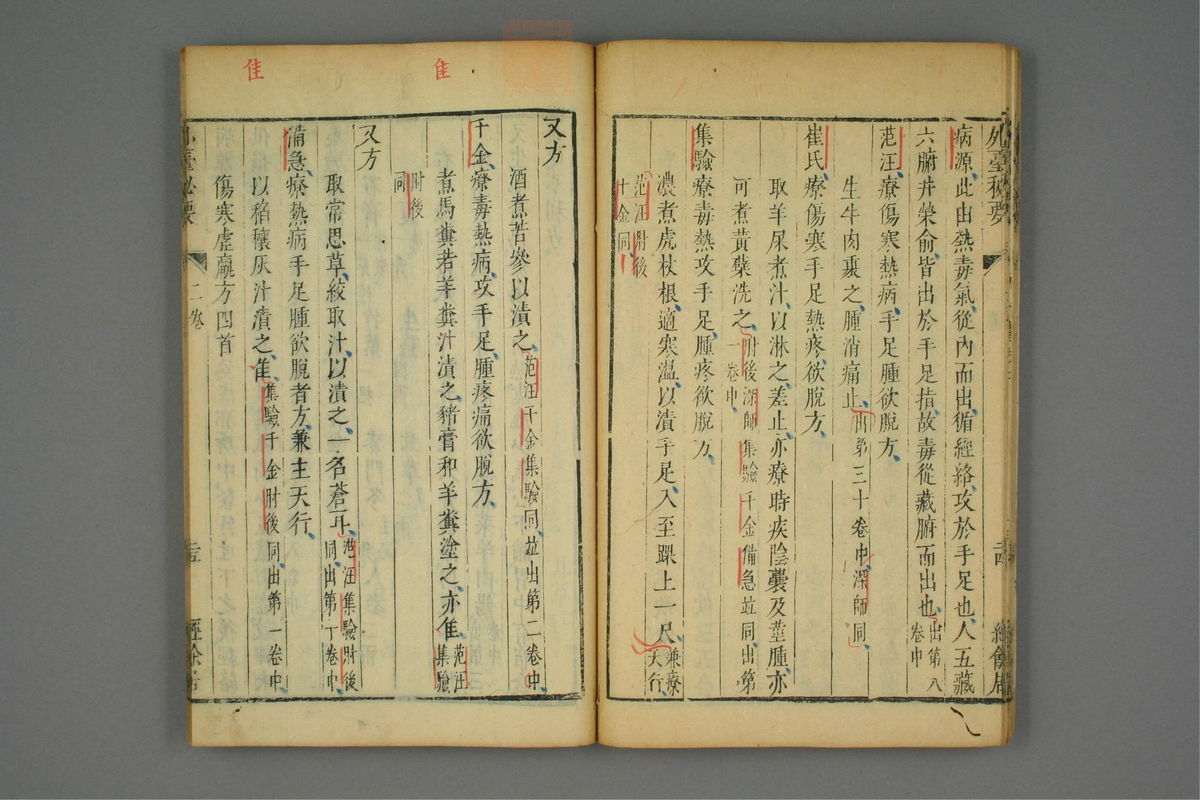 外臺秘要
二十四
經餘居
病源此由熱毒氣從內而出循經絡攻於手足也人五藏
六腑井榮俞皆出於手足指故毒從藏腑而出也出第八卷中
范汪療傷寒熱病手足腫欲脫方
生牛肉裹之腫消痛止出第三十卷中深師同
崔氏療傷寒手足熱疼欲脫方
取羊屎煮汁以淋之差止亦療時疾陰囊及莖腫亦
可煮黃蘗洗之肘後深師集驗千金備急竝同出第一卷中
集驗療毒熱攻手足腫疼欲脫方
濃煮虎杖根適寒温以漬手足入至踝上一尺兼療天行
范汪肘後千金同
又方
酒煮苦參以漬之范汪千金集驗同竝出第二卷中
千金療毒熱病攻手足腫疼痛欲脫方
煮馬糞若羊糞汁漬之豬膏和羊糞塗之亦佳范汪集驗
肘後同
又方
取常思草絞取汁以漬之一名蒼耳范汪集驗肘後同出第十卷中
備急療熱病手足腫欲脫者方兼主天行
以稻穰灰汁漬之佳集驗千金肘後同出第一卷中
傷寒虛羸方四首
外臺秘要
二卷
二十五
經餘居
佳
佳